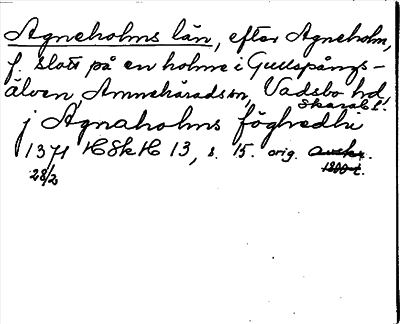 Agneholms län, efter Agneholm,
f. slott på en holme i Gullspångs-
älven Amnehäradssn, Vadsbo hd,
Skarab. l.
j Agnaholms föghredhi
1371 HSkH 13, s. 15. orig. avskr.
28/2 1800-t.